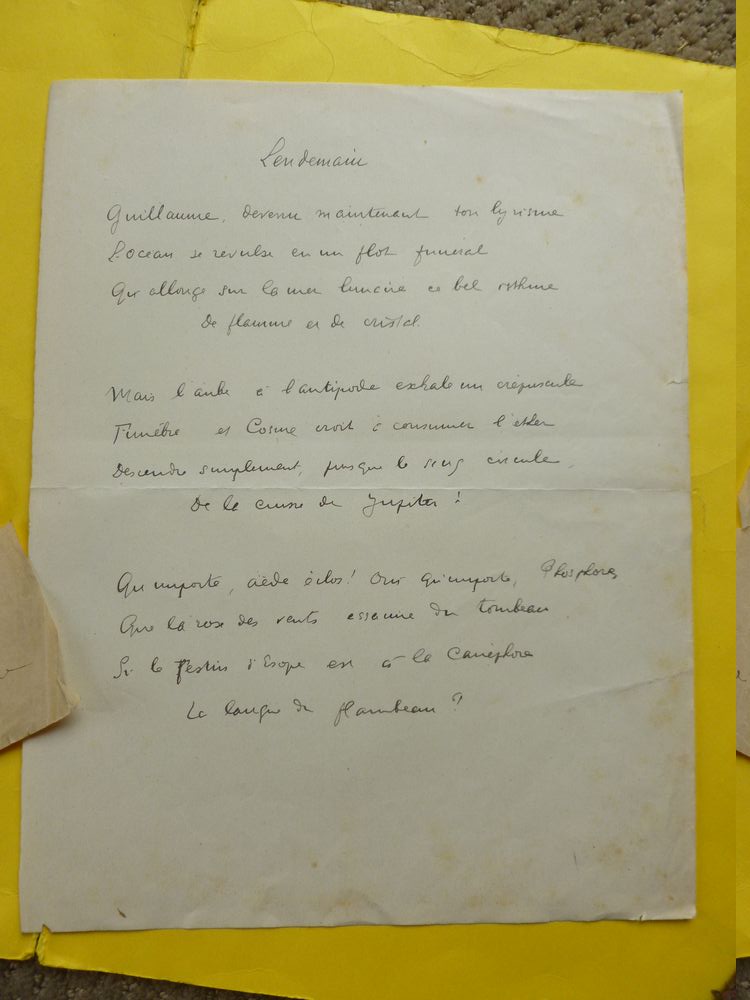 Lendemain
Guillaume, devenu maintenant ton lyrisme
L'ocean se revulse en un flot funéral
Qui allonge sur la mer lunaire ce bel isthme
De flamme et de cristal.
Mais l'aube à l'antipode exhale un crépuscule
Funèbre et Cosme croit à consumer l'ether
Descendre simplement, puisque le sang circule,
De la cuisse de Jupiter !
Qu'importe, aède éclos! Oui qu'importe, Phosphore,
Que la rose des vents essaime du tombeau
Si le Festin d'Esope est à la Canéphore
La langue du flambeau ?